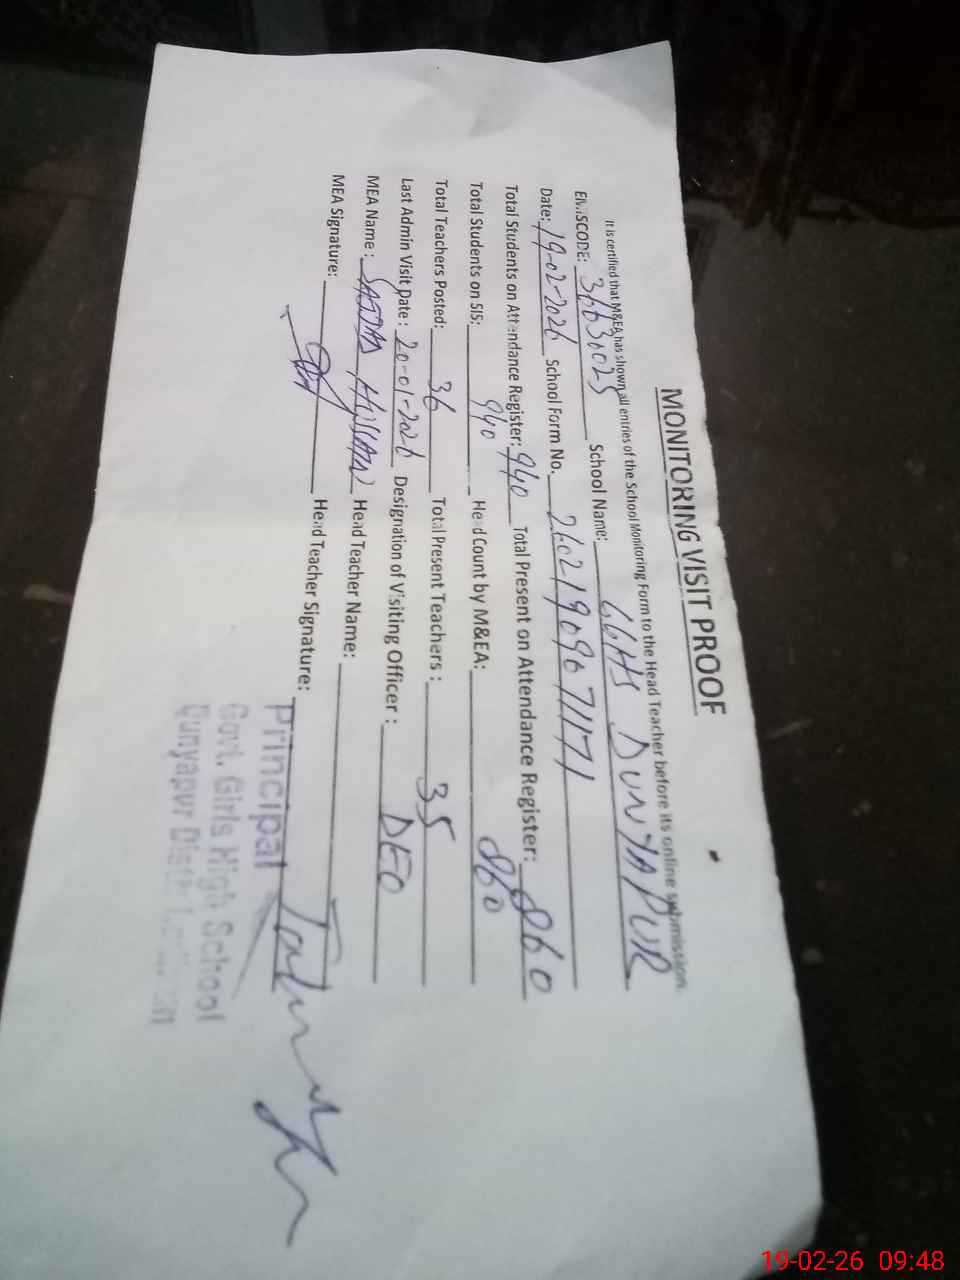 MONITORING VISIT PROOF
It is certified that M&EA has shown all entries of the School Monitoring Form to the Head Teacher before its online submission.
EMISCODE: 36630025 School Name: GGHS DUNYAPUR
Date: 19-02-2026 School Form No. 26021909071171
Total Students on Attendance Register: 940 Total Present on Attendance Register: 860
Total Students on SIS: 940 Head Count by M&EA: 860
Total Teachers Posted: 36 Total Present Teachers: 35
Last Admin Visit Date: 20-01-2026 Designation of Visiting Officer: DEO
MEA Name: SAJJAD HUSSAIN Head Teacher Name:
MEA Signature: Head Teacher Signature:
Principal
Govt. Girls High School
Dunyapur Distt:
19-02-26 09:48